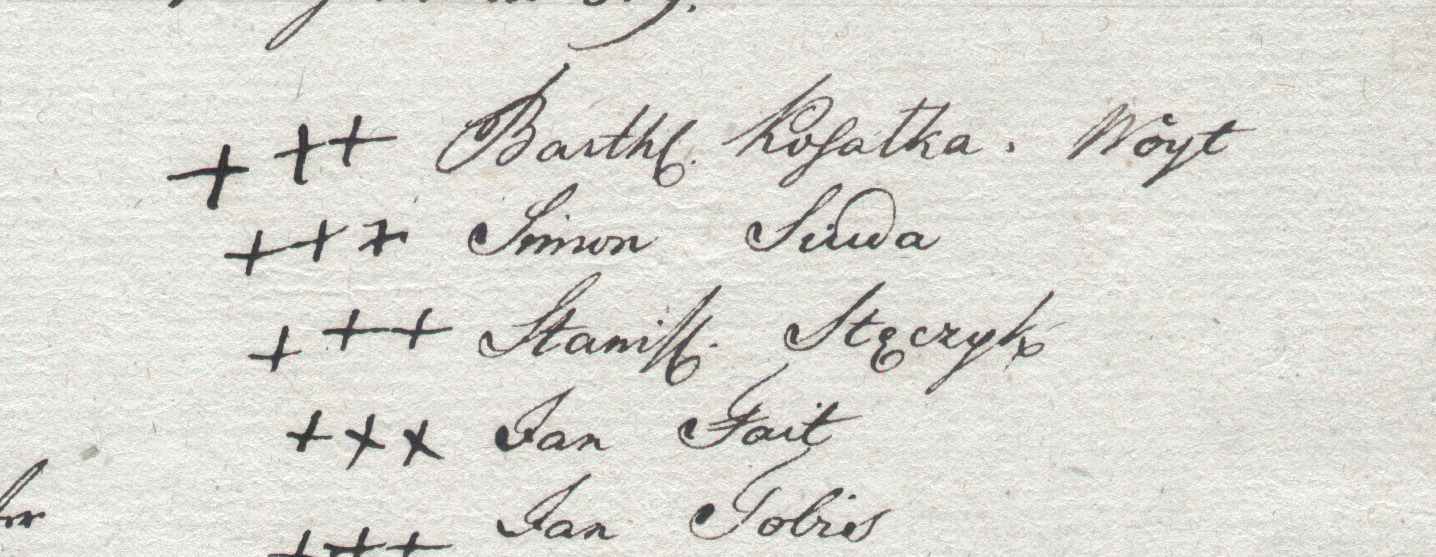 +++ Barthl. Kosatka. Woyt
+++ Simon Siuda
+++ Stanisl. Stęczyk
+++ Jan Fait
+++ Jan Tobis